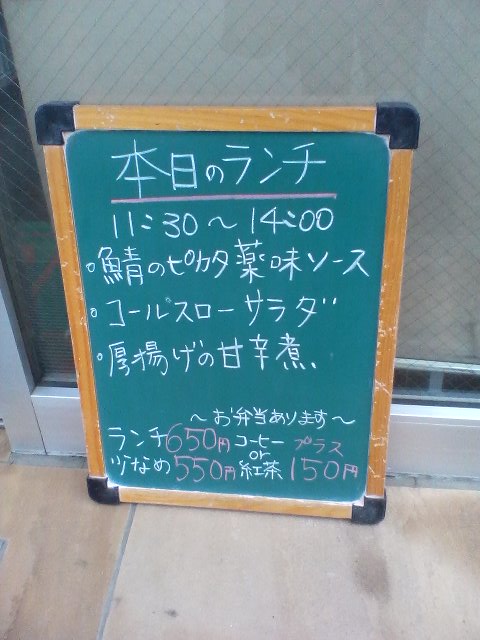 本日のランチ
11:30〜14:00
・鯖のピカタ薬味ソース
・コールスローサラダ
・厚揚げの甘辛煮
〜お弁当あります〜
ランチ650円 コーヒー プラス
or
少なめ550円 紅茶 150円